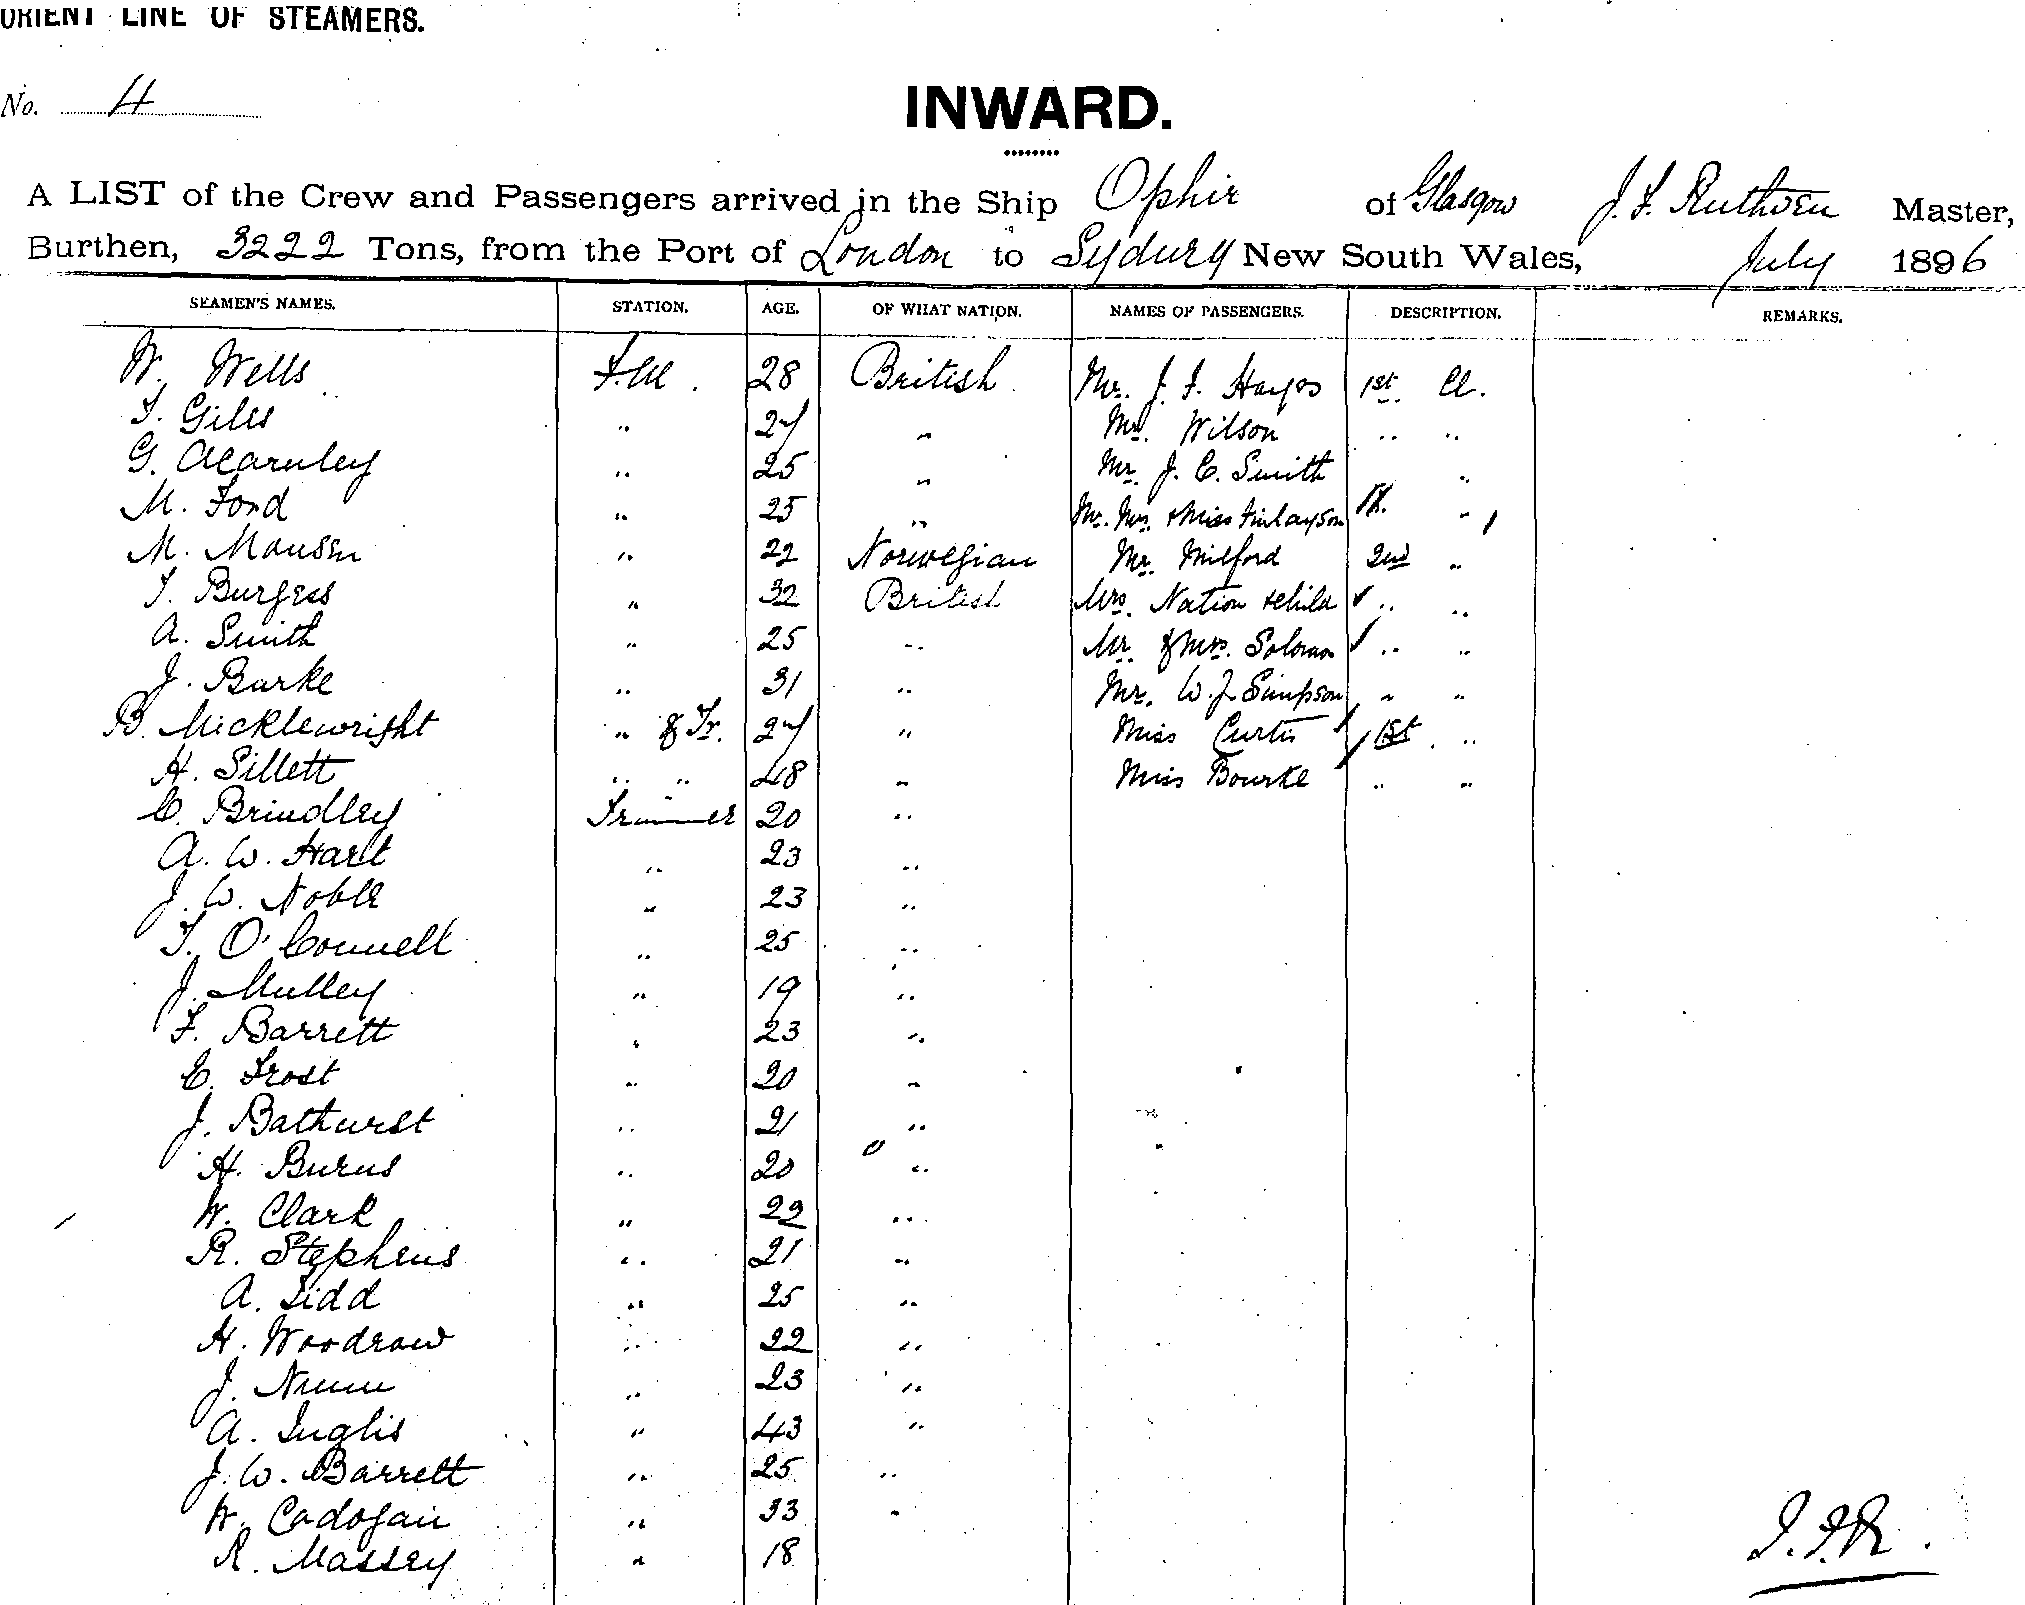 ORIENT LINE OF STEAMERS.
No. 4
INWARD.
A LIST of the Crew and Passengers arrived in the Ship Ophir of Glasgow J. F. Ruthven Master,
Burthen, 3222 Tons, from the Port of London to Sydney New South Wales, July 1896
SEAMEN'S NAMES. STATION. AGE. OF WHAT NATION. NAMES OF PASSENGERS. DESCRIPTION. REMARKS.
W. Wells 28 British Mr. J. F. Hayes 1st. Cl.
T. Giles " 27 " Mr. Wilson " "
G. " 25 " Mr. J. C. Smith "
M. Ford " 25 " Mr. Mrs. & Miss Finlayson "
M. " 22 Norwegian Mr. Milford 2nd "
T. Burgess " 32 British Mrs. Nation & child " "
A. Smith " 25 " Mr. & Mrs. Solomon " "
J. Burke " 31 " Mr. W. J. Simpson " "
B. Micklewright " & Tr. 27 " Miss Curtis 1st "
H. Sillett " " 48 " Miss Bourke " "
C. Brindley Trimmer 20 "
A. W. Hart " 23 "
J. W. Noble " 23 "
T. O'Connell " 25 "
J. Mulley " 19 "
F. Barrett " 23 "
E. Frost " 20 "
J. Bathurst " 21 "
H. Burns " 20 "
W. Clark " 22 "
R. Stephens " 21 "
A. " 25 "
H. Woodrow " 22 "
J. Nunn " 23 "
A. Inglis " 43 "
J. W. Barrett " 25 "
W. Cadogan " 33 "
R. Massey " 18
J.F.R.